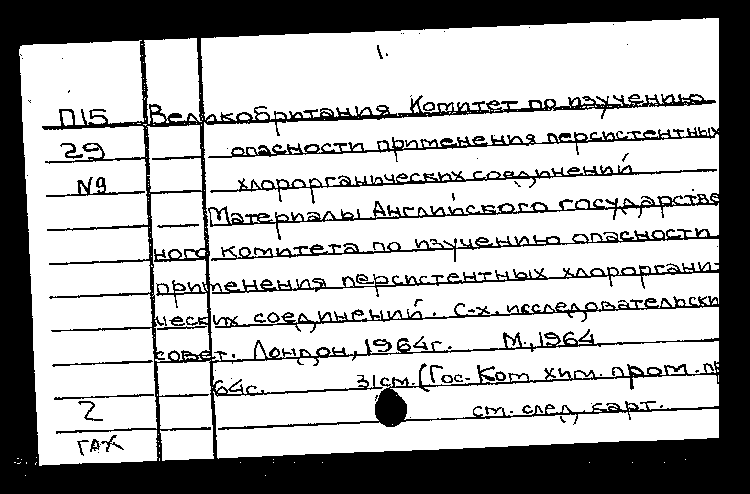 1.
П15 Великобритания Комитет по изучению
29 опасности применения персистентных
N9 хлорорганических соединений
Материалы Английского государстве
ного комитета по изучению опасности
применения персистентных хлороргани
ческих соединений. С-х. исследовательски
совет. Лондон, 1964г. М., 1964
64с. 31см. (Гос. Ком хим. пром. пр
2 ст. след. карт.
ГАХ